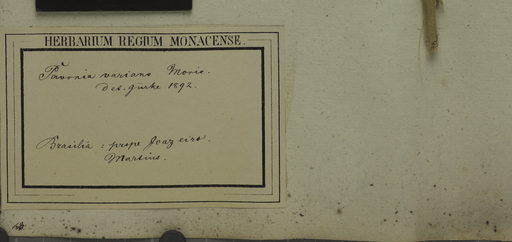 HERBARIUM REGIUM MONACENSE.
Pavonia varians Moric.
det. Gurke 1892.
Brasilia: prope Joazeiro.
Martius.